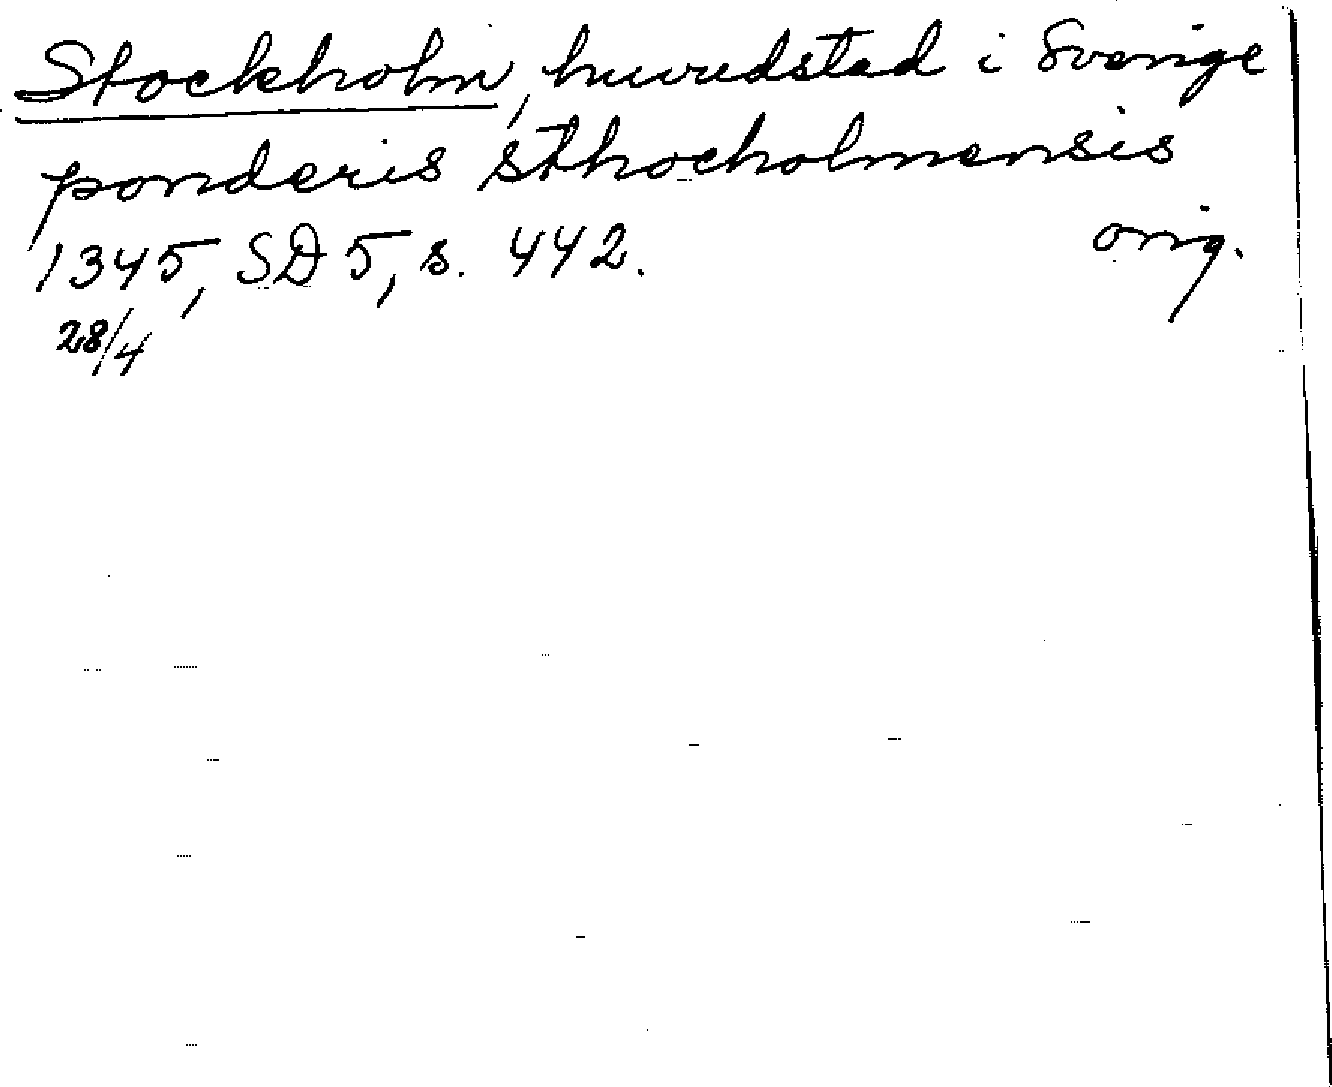 Stockholm, huvudstad i Sverige
ponderis sthocholmensis
1345, SD 5, s. 442. orig.
28/4